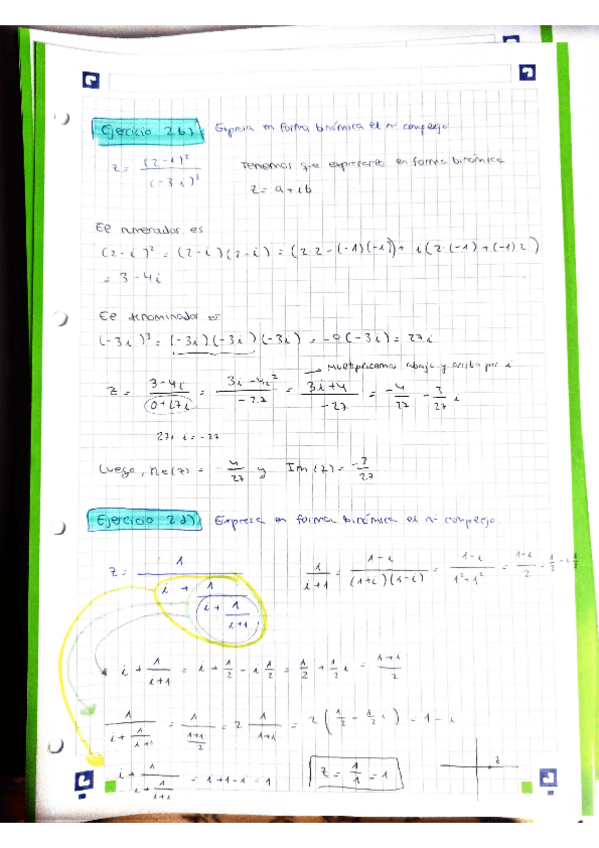 Ejercicio 2b) Expresa en forma binómica el nº complejo
z = (2-i)² / (-3i)³ Tenemos que expresarlo en forma binómica
z = a+ib
El numerador es
(2-i)² = (2-i)(2-i) = (2·2-(-1)(-1)) + i(2·(-1)+(-1)2)
= 3-4i
El denominador es
(-3i)³ = (-3i)(-3i)(-3i) = -9(-3i) = 27i
→ Multiplicamos abajo y arriba por i
z = 3-4i / 0+27i = 3i-4i² / -27 = 3i+4 / -27 = -4/27 - 3/27 i
27i·i = -27
Luego, Re(z) = -4/27 y Im(z) = -3/27
Ejercicio 2d) Expresa en forma binómica el nº complejo
z = 1 / (i + 1 / (i + 1 / (i+1))) 1/(i+1) = (1-i) / (1+i)(1-i) = (1-i) / (1²+1²) = (1-i)/2 = 1/2 - i 1/2
i + 1/(i+1) = i + 1/2 - i 1/2 = 1/2 + 1/2 i = (1+i)/2
1 / (i + 1/(i+1)) = 1 / ((1+i)/2) = 2 1/(1+i) = 2(1/2 - 1/2 i) = 1-i
i + 1 / (i + 1/(i+1)) = i+1-i = 1 z = 1/1 = 1 z